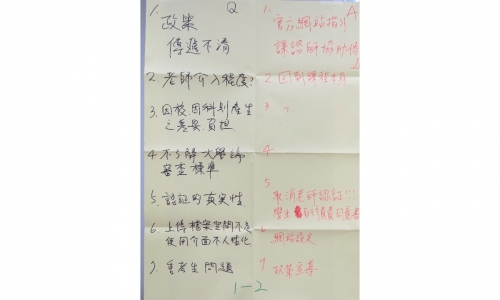 1. Q
政策
傳遞不清
2. 老師介入程度?
3. 因校、因科別產生
之差異、負担
4. 不了解大學端
審查標準
5. 認証的真實性
6. 上傳檔案空間不足
使用介面不人性化
7. 重考生問題
1. A
官方網站指引
課諮師協助
2. 回到課程本身
3.
4.
5
取消老師認証!!!
學生自行負責
6. 網站設定
7. 政策宣導
1-2